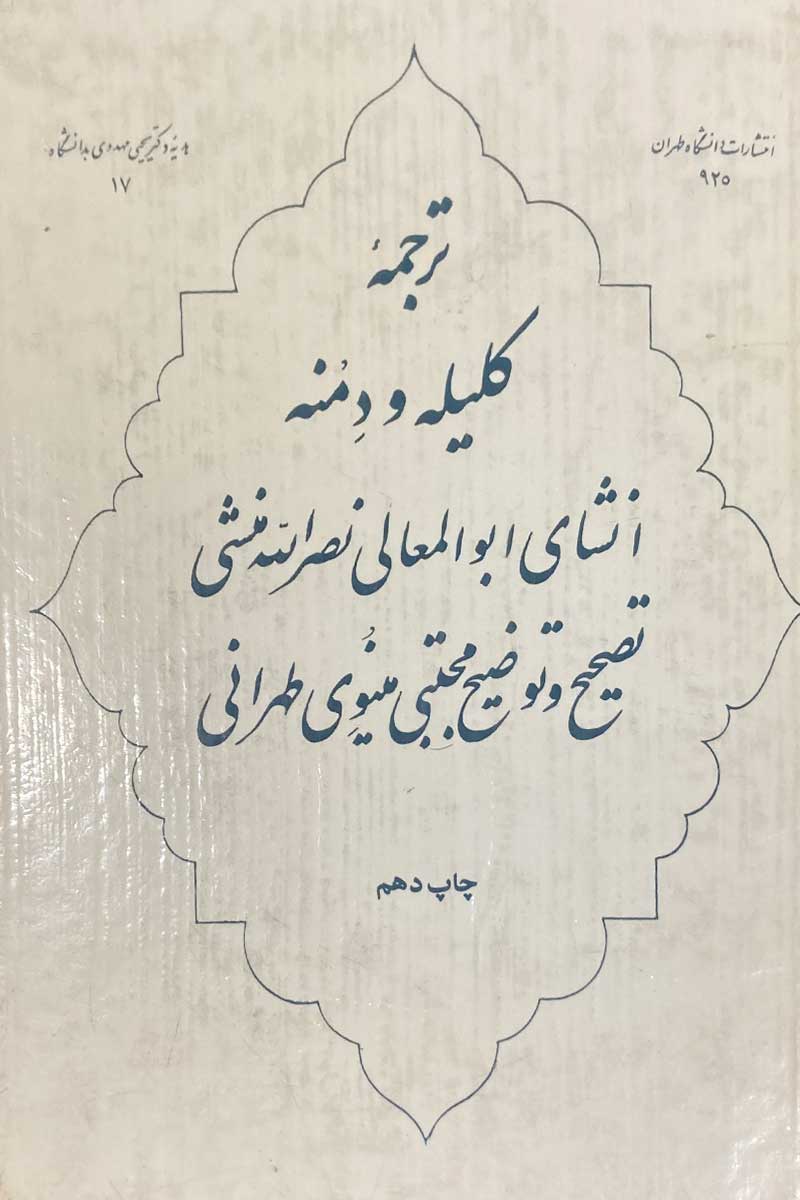 انتشارات دانشگاه طهران
۹۲۵
هدیهٔ دکتر یحیی مهدوی بدانشگاه
۱۷
ترجمهٔ
کلیله و دِمْنه
انشای ابوالمعالی نصرالله منشی
تصحیح و توضیح مجتبی مینُوِی طهرانی
چاپ دهم